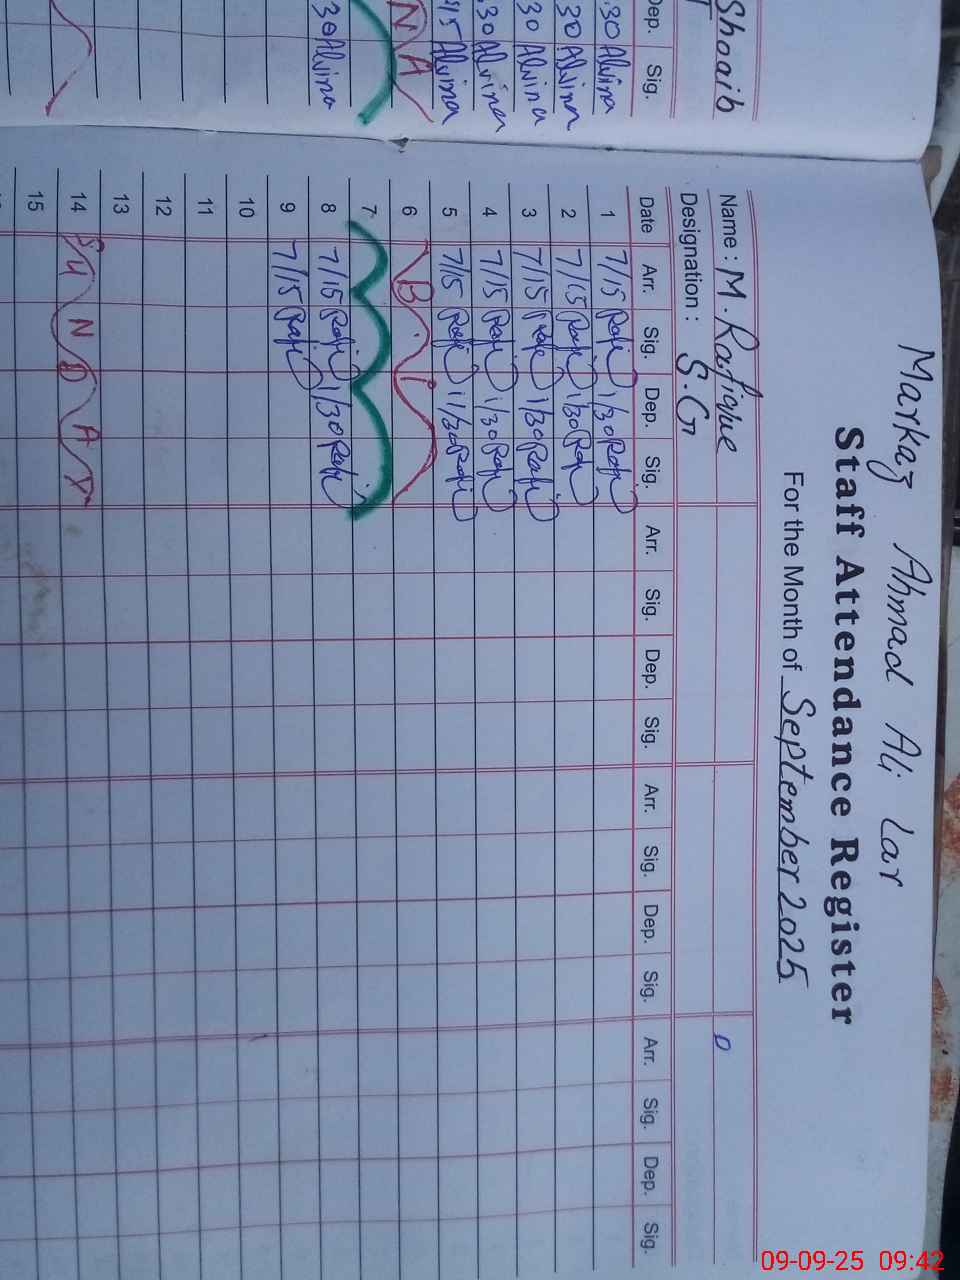 Markaz Ahmad Ali Lar
Staff Attendance Register
For the Month of September 2025
Name : M. Rafique
Designation : S.G
Date Arr. Sig. Dep. Sig. Arr. Sig. Dep. Sig. Arr. Sig. Dep. Sig. Arr. Sig. Dep. Sig.
1 7/15 Rafi 1/30 Rafi
2 7/15 Rafi 1/30 Rafi
3 7/15 Rafi 1/30 Rafi
4 7/15 Rafi 1/30 Rafi
5 7/15 Rafi 1/30 Rafi
6
7
8 7/15 Rafi 1/30 Rafi
9 7/15 Rafi
10
11
12
13
14 SUNDAY
15
Shoaib
Dep. Sig.
30 Alvina
30 Alvina
30 Alvina
30 Alvina
15 Alvina
NA
30 Alvina
09-09-25 09:42